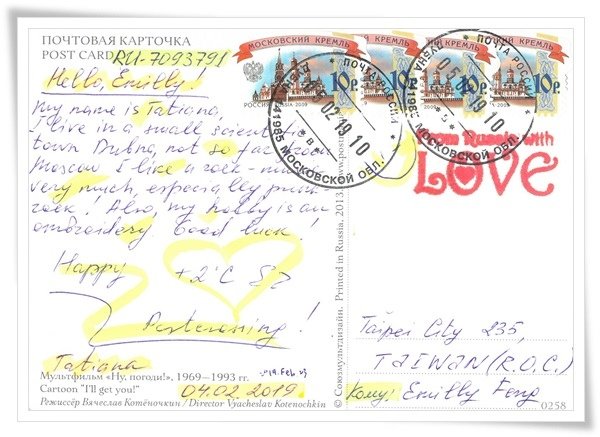 ПОЧТОВАЯ КАРТОЧКА
POST CARD
RU-7093791
Hello, Emilly!
My name is Tatiana,
I live in a small scientific
town Dubna, not so far from
Moscow. I like a rock-music
very much, especially punk
rock! Also, my hobby is an
embroidery. Good luck!
Happy +2°C
Postcrossing!
Tatiana
04.02.2019
Мультфильм «Ну, погоди!», 1969–1993 гг.
Cartoon "I'll get you!"
Режиссёр Вячеслав Котёночкин / Director Vyacheslav Kotenochkin
© Союзмультдизайн. Printed in Russia, 2013.
МОСКОВСКИЙ КРЕМЛЬ
10р
РОССИЯ RUSSIA 2009
КРЕМЛЬ
10р
КРЕМЛЬ
10р
КРЕМЛЬ
10р
ПОЧТА РОССИИ
ДУБНА 141985 МОСКОВСКОЙ ОБЛ.
ПОЧТА РОССИИ
МОСКОВСКОЙ ОБЛ.
From Russia with
LOVE
Taipei City 235,
TAIWAN (R.O.C.)
Кому: Emilly Fong
0258